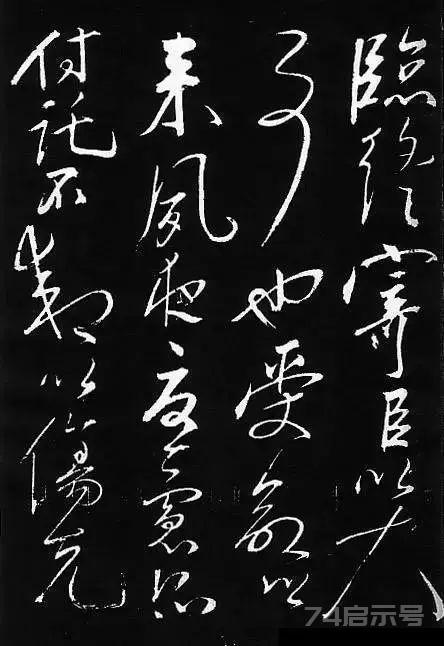 臨終寄臣以大
事也受命以
来夙夜憂慮恐
付託不效以傷先
74启示号